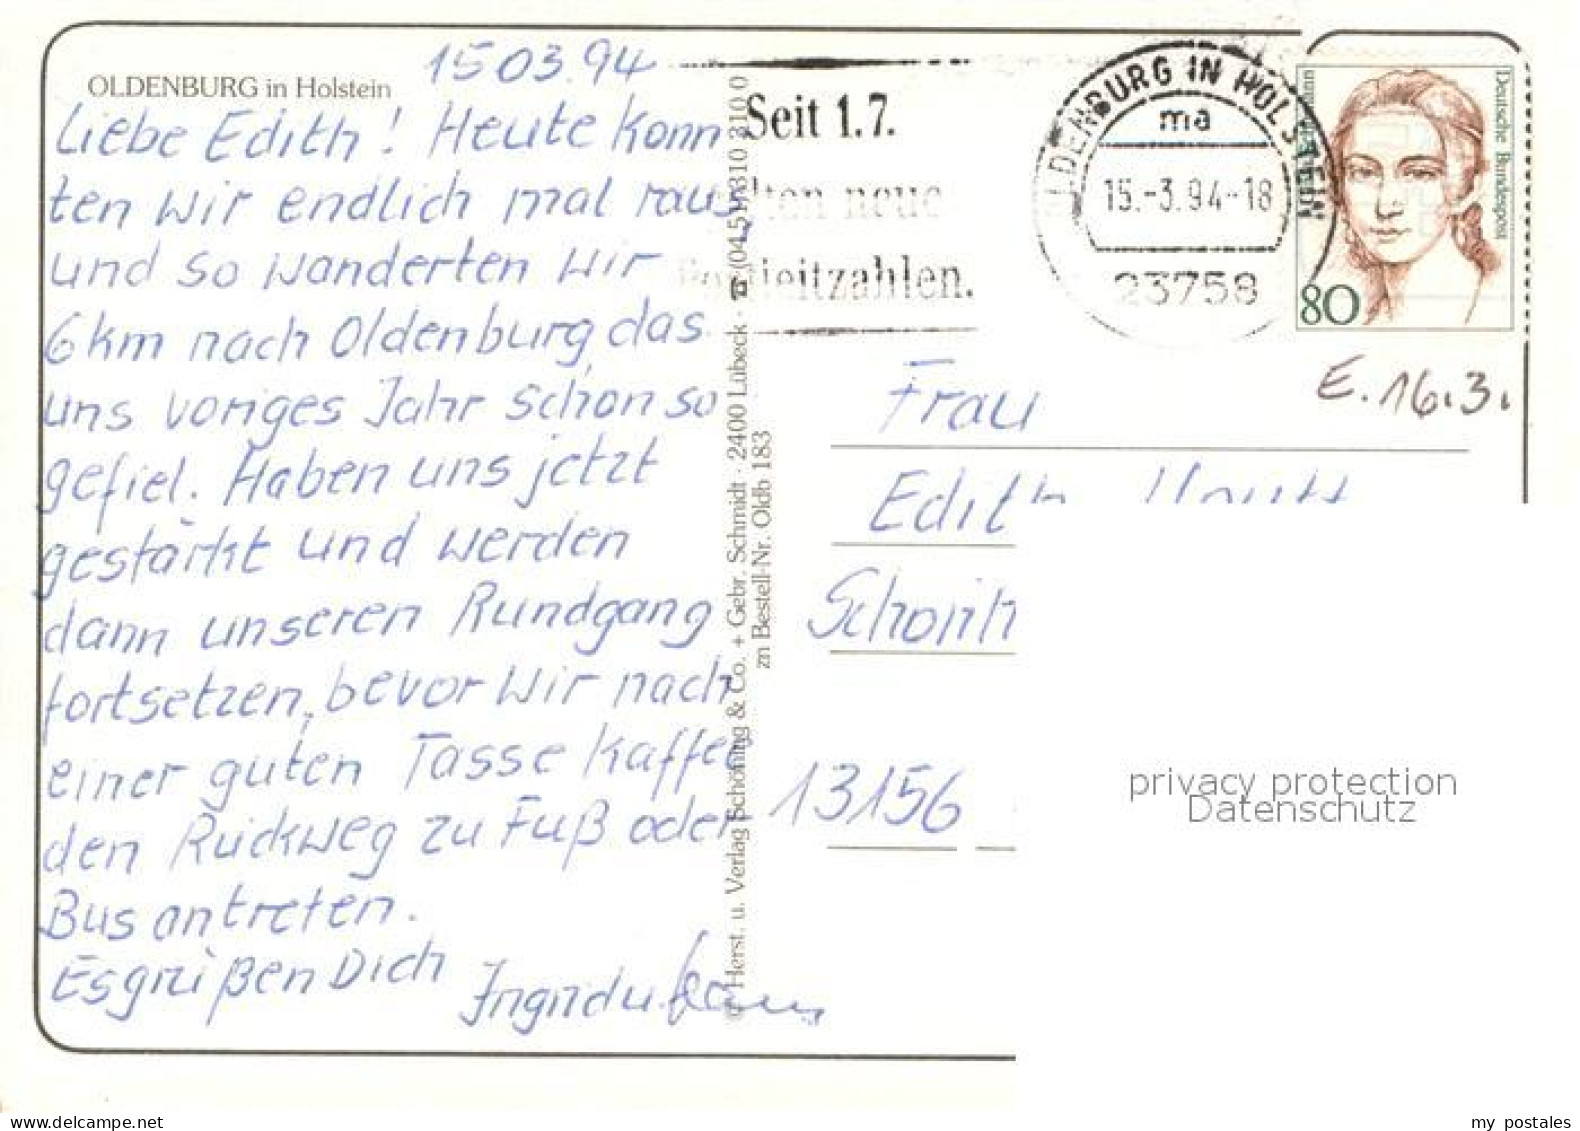 15.03.94
OLDENBURG in Holstein
Liebe Edith! Heute konn
ten wir endlich mal raus,
und so wanderten wir
6 km nach Oldenburg, das
uns voriges Jahr schon so
gefiel. Haben uns jetzt
gestärkt und werden
dann unseren Rundgang
fortsetzen, bevor wir nach
einer guten Tasse Kaffee
den Rückweg zu Fuß oder
Bus antreten.
Es grüßen Dich Ingrid u.
© Herst. u. Verlag Schöning & Co. + Gebr. Schmidt · 2400 Lübeck · ☎ (04 51) 310 310 0
zn Bestell-Nr. Oldb 183
Seit 1.7.
gelten neue
Postleitzahlen.
OLDENBURG IN HOLSTEIN
ma
15.-3.94-18
23758
Deutsche Bundespost
80
E. 16.3.
Frau
Edith
13156
privacy protection
Datenschutz
my postales